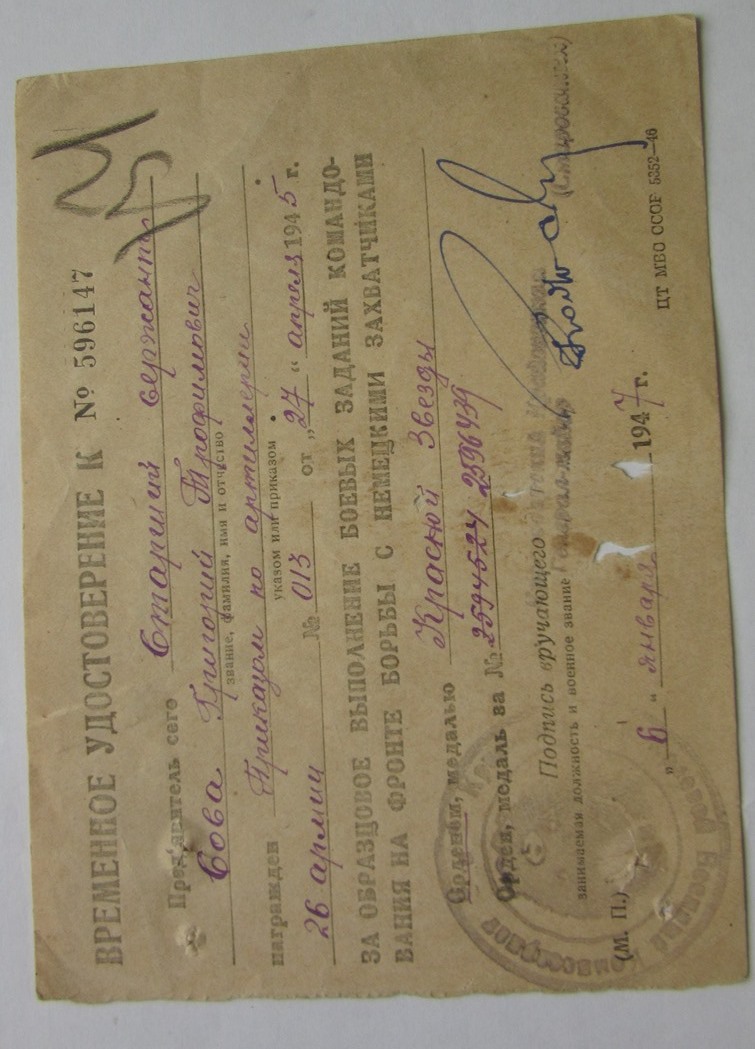 ВРЕМЕННОЕ УДОСТОВЕРЕНИЕ К № 596147
Пред'явитель сего Старший сержант
Сова Григорий Трофимович
звание, фамилия, имя и отчество
награжден Приказом по артиллерии
указом или приказом
26 армии № 013 от „27“ апреля 1945 г.
ЗА ОБРАЗЦОВОЕ ВЫПОЛНЕНИЕ БОЕВЫХ ЗАДАНИЙ КОМАНДО-
ВАНИЯ НА ФРОНТЕ БОРЬБЫ С НЕМЕЦКИМИ ЗАХВАТЧИКАМИ
Орденом, медалью Красной Звезды
Орден, медаль за № 2594524 2596439
Подпись вручающего
занимаемая должность и военное звание Генерал-майор
(М. П.) „6“ января 1947 г.
ЦТ МВО СССР 5352—46